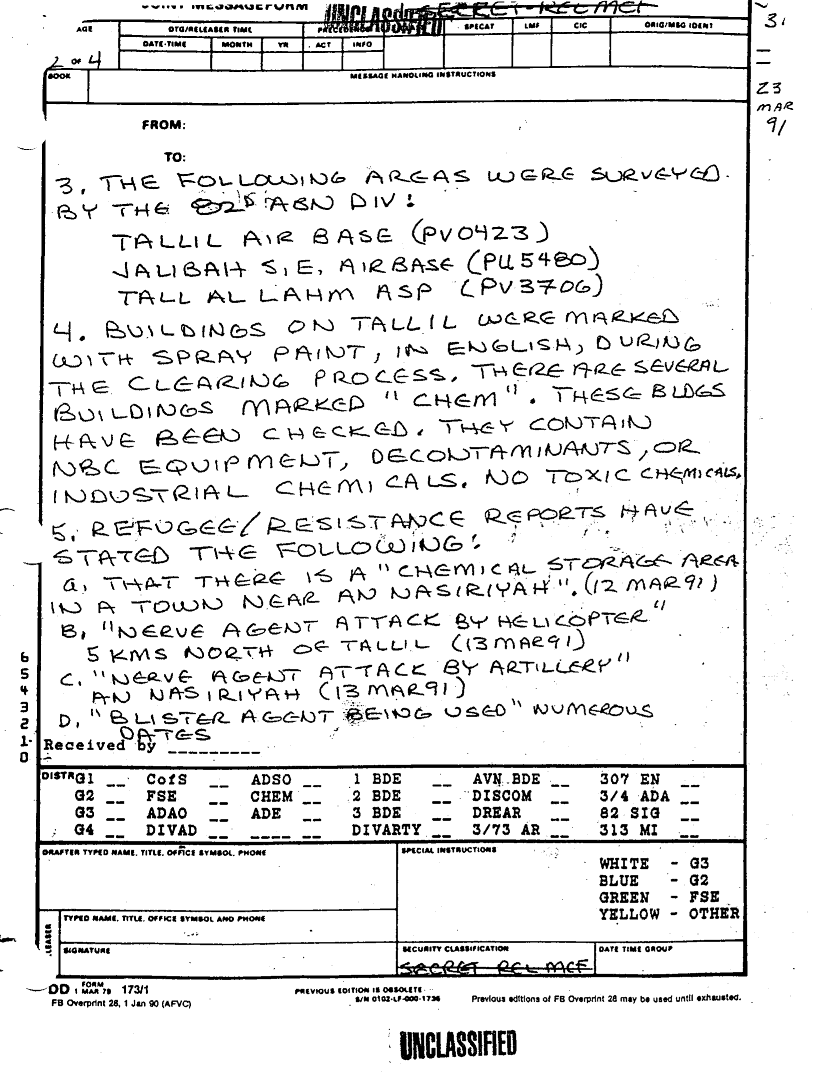 JOINT MESSAGEFORM UNCLASSIFIED SECRET REL MCF
31
AGE DTG/RELEASER TIME PRECEDENCE SPECAT LMF CIC ORIG/MSG IDENT
DATE-TIME MONTH YR ACT INFO
2 OF 4
BOOK MESSAGE HANDLING INSTRUCTIONS
23
MAR
91
FROM:
TO:
3. THE FOLLOWING AREAS WERE SURVEYED
BY THE 82D ABN DIV:
TALLIL AIR BASE (PV0423)
JALIBAH S.E. AIRBASE (PU5480)
TALL AL LAHM ASP (PV3706)
4. BUILDINGS ON TALLIL WERE MARKED
WITH SPRAY PAINT, IN ENGLISH, DURING
THE CLEARING PROCESS. THERE ARE SEVERAL
BUILDINGS MARKED "CHEM". THESE BLDGS
HAVE BEEN CHECKED. THEY CONTAIN
NBC EQUIPMENT, DECONTAMINANTS, OR
INDUSTRIAL CHEMICALS. NO TOXIC CHEMICALS.
5. REFUGEE/RESISTANCE REPORTS HAVE
STATED THE FOLLOWING:
a. THAT THERE IS A "CHEMICAL STORAGE AREA
IN A TOWN NEAR AN NASIRIYAH". (12 MAR91)
B. "NERVE AGENT ATTACK BY HELICOPTER"
5 KMS NORTH OF TALLIL (13MAR91)
C. "NERVE AGENT ATTACK BY ARTILLERY"
AN NASIRIYAH (13MAR91)
D. "BLISTER AGENT BEING USED" NUMEROUS
DATES
6
5
4
3
2
1
0
Received by _________
DISTR G1 __ CofS __ ADSO __ 1 BDE __ AVN BDE __ 307 EN __
G2 __ FSE __ CHEM __ 2 BDE __ DISCOM __ 3/4 ADA __
G3 __ ADAO __ ADE __ 3 BDE __ DREAR __ 82 SIG __
G4 __ DIVAD __ ____ __ DIVARTY __ 3/73 AR __ 313 MI __
DRAFTER TYPED NAME, TITLE, OFFICE SYMBOL, PHONE
SPECIAL INSTRUCTIONS
WHITE - G3
BLUE - G2
GREEN - FSE
YELLOW - OTHER
TYPED NAME, TITLE, OFFICE SYMBOL AND PHONE
SIGNATURE
SECURITY CLASSIFICATION
DATE TIME GROUP
SECRET REL MCF
DD FORM 1 MAR 79 173/1
PREVIOUS EDITION IS OBSOLETE
S/N 0102-LF-000-1736
FB Overprint 28, 1 Jan 90 (AFVC)
Previous editions of FB Overprint 28 may be used until exhausted.
UNCLASSIFIED